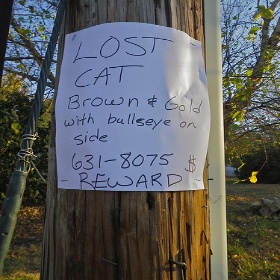 LOST
CAT
Brown & Gold
with bullseye on
side
631-8075 $
- REWARD -